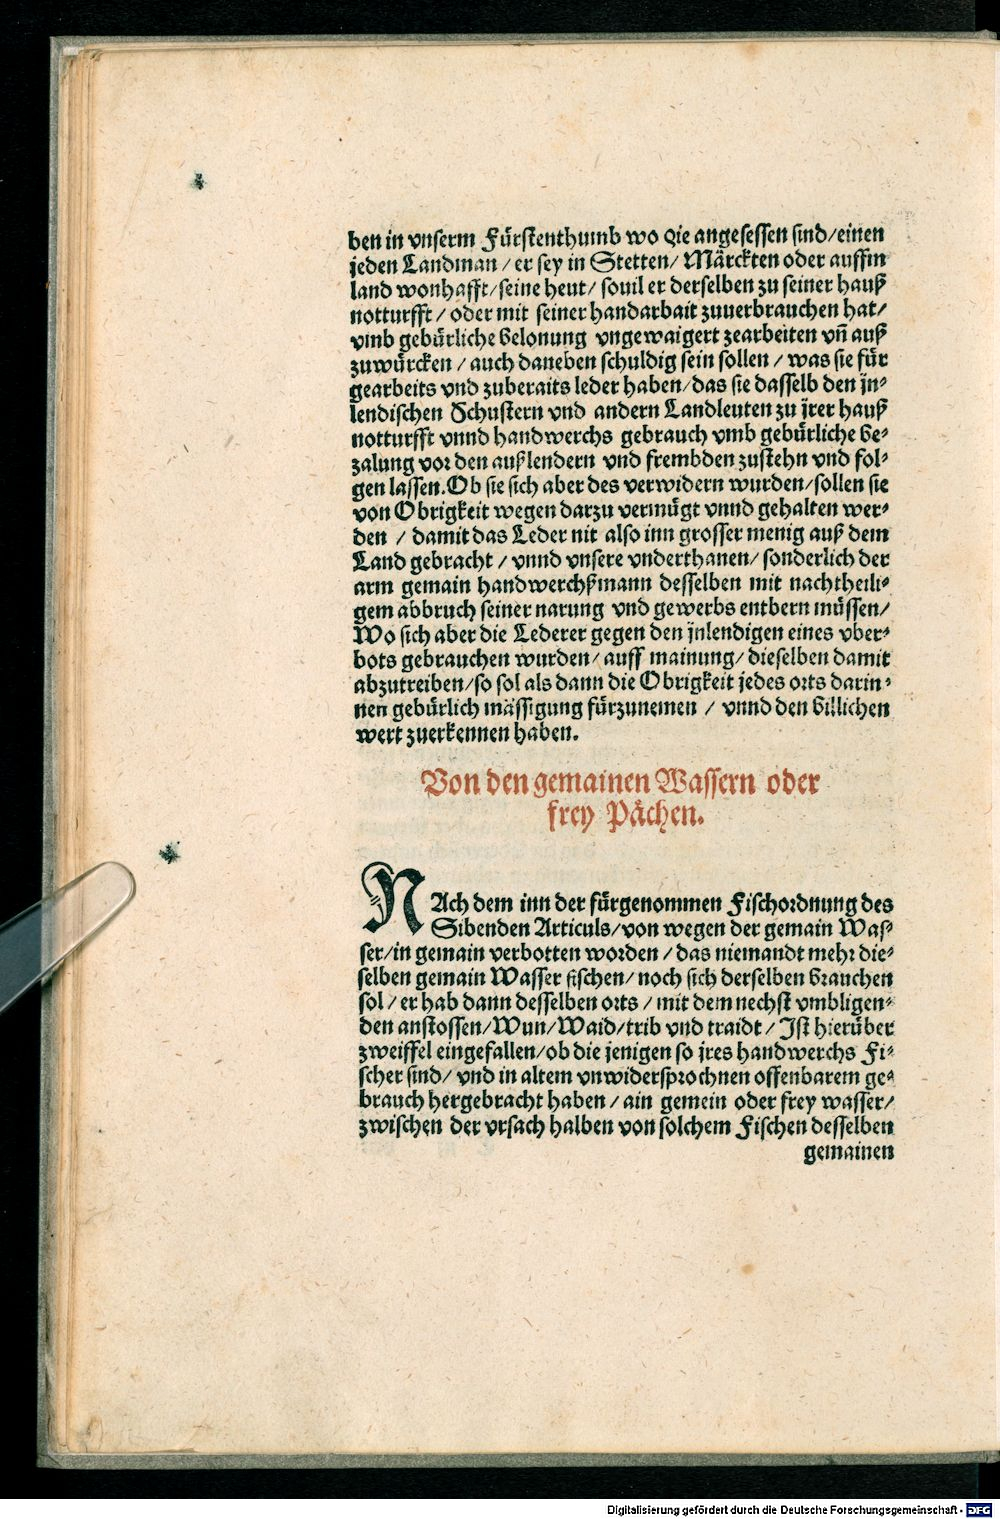 ben in vnserm Fürstenthumb wo die angesessen sind/einen
jeden Landman / er sey in Stetten/ Märckten oder auffm
land wonhafft/seine heut/ souil er derselben zu seiner hauß
notturfft / oder mit seiner handarbait zuuerbrauchen hat/
vmb gebürliche belonung vngewaigert zearbeiten vñ auß
zuwürcken / auch daneben schuldig sein sollen / was sie für
gearbeits vnd zuberaits leder haben/das sie dasselb den jn-
lendischen Schustern vnd andern Landleuten zu jrer hauß
notturfft vnnd handwerchs gebrauch vmb gebürliche be-
zalung vor den außlendern vnd frembden zustehn vnd fol-
gen lassen.Ob sie sich aber des verwidern wurden/sollen sie
von Obrigkeit wegen darzu vermügt vnnd gehalten wer-
den / damit das Leder nit also inn grosser menig auß dem
Land gebracht / vnnd vnsere vnderthanen/ sonderlich der
arm gemain handwerchßmann desselben mit nachtheili-
gem abbruch seiner narung vnd gewerbs entbern müssen/
Wo sich aber die Lederer gegen den jnlendigen eines vber-
bots gebrauchen wurden/ auff mainung/ dieselben damit
abzutreiben/so sol als dann die Obrigkeit jedes orts darin-
nen gebürlich mässigung fürzunemen / vnnd den billichen
wert zuerkennen haben.
Von den gemainen Wassern oder
frey Pächen.
NAch dem inn der fürgenommen Fischordnung des
Sibenden Articuls/von wegen der gemain Was-
ser/in gemain verbotten worden / das niemandt mehr die-
selben gemain Wasser fischen/ noch sich derselben brauchen
sol / er hab dann desselben orts / mit dem nechst vmbligen-
den anstossen/Wun/Waid/trib vnd traidt / Ist hierüber
zweiffel eingefallen/ob die jenigen so jres handwerchs Fi-
scher sind/ vnd in altem vnwidersprochnen offenbarem ge-
brauch hergebracht haben / ain gemein oder frey wasser/
zwischen der vrsach halben von solchem Fischen desselben
gemainen
Digitalisierung gefördert durch die Deutsche Forschungsgemeinschaft - DFG